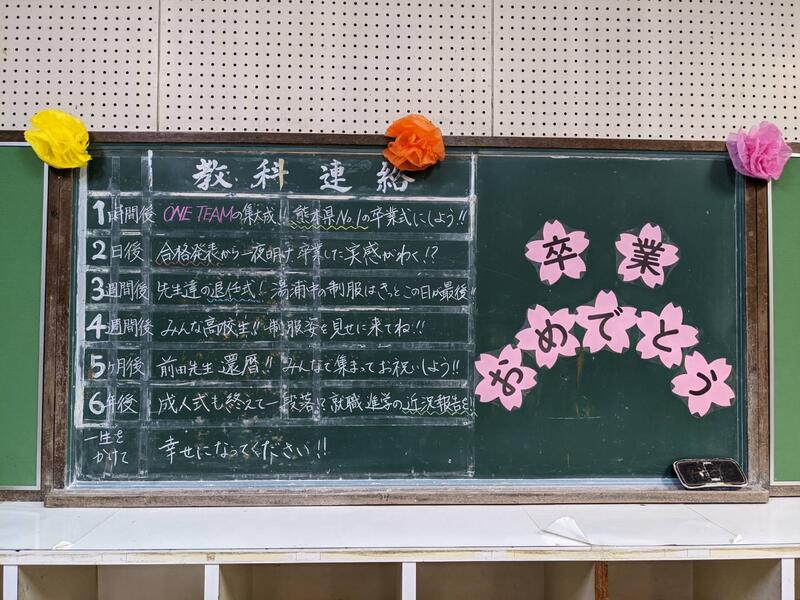 教科連絡
1時間後 ONE TEAMの集大成!! 熊本県No.1の卒業式にしよう!!
2日後 合格発表から一夜明け卒業した実感がわく!?
3週間後 先生達の退任式! 湯浦中の制服はきっとこの日が最後!!
4週間後 みんな高校生!! 制服姿を見せに来てね!!
5ヶ月後 前田先生還暦!! みんなで集まってお祝いしよう!!
6年後 成人式も終えて一段落し就職進学の近況報告を!!
一生をかけて 幸せになってください!!
卒業
おめでとう